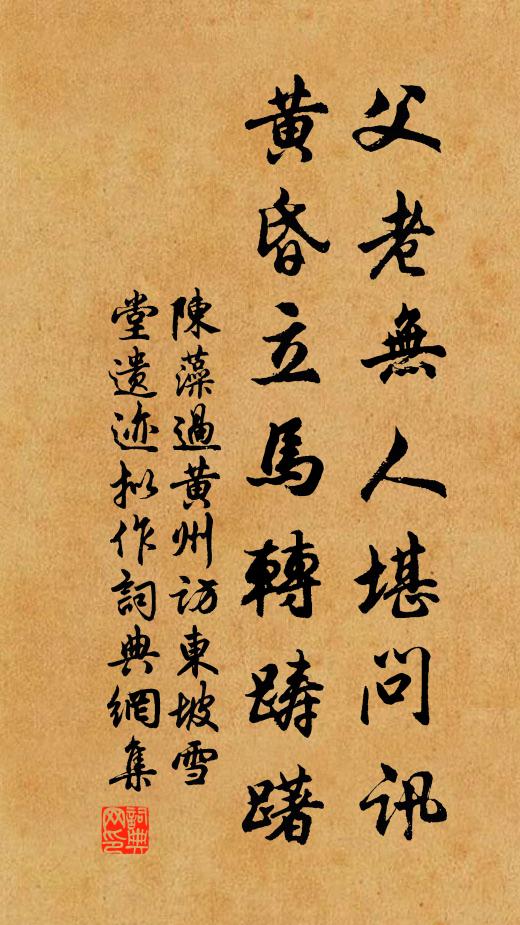 父老無人堪問訊
黃昏立馬轉踌躇
陳藻過黃州訪東坡雪
堂遗迹拟作詞典網集
詞典
网印